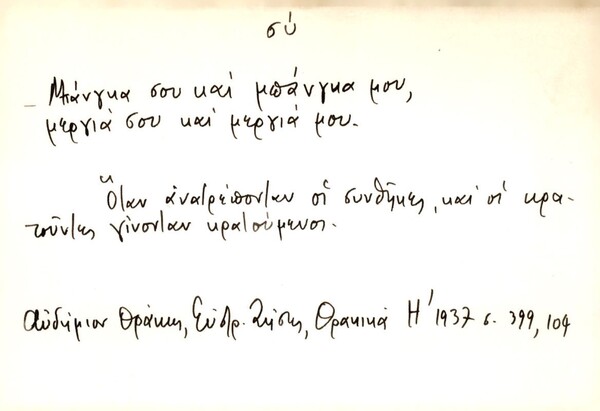 σύ
– Μπάνγκα σου καί μπάνγκα μου,
μεργιά σου καί μεργιά μου.
"Ὅταν ἀνατρέπονταν οἱ συνθῆκες, καί οἱ κρα-
τοῦντες γίνονταν κρατούμενοι.
Αὐδήμιον Θράκης, Εὐστρ. Ζήσης, Θρακικά Η' 1937 σ. 399, 104